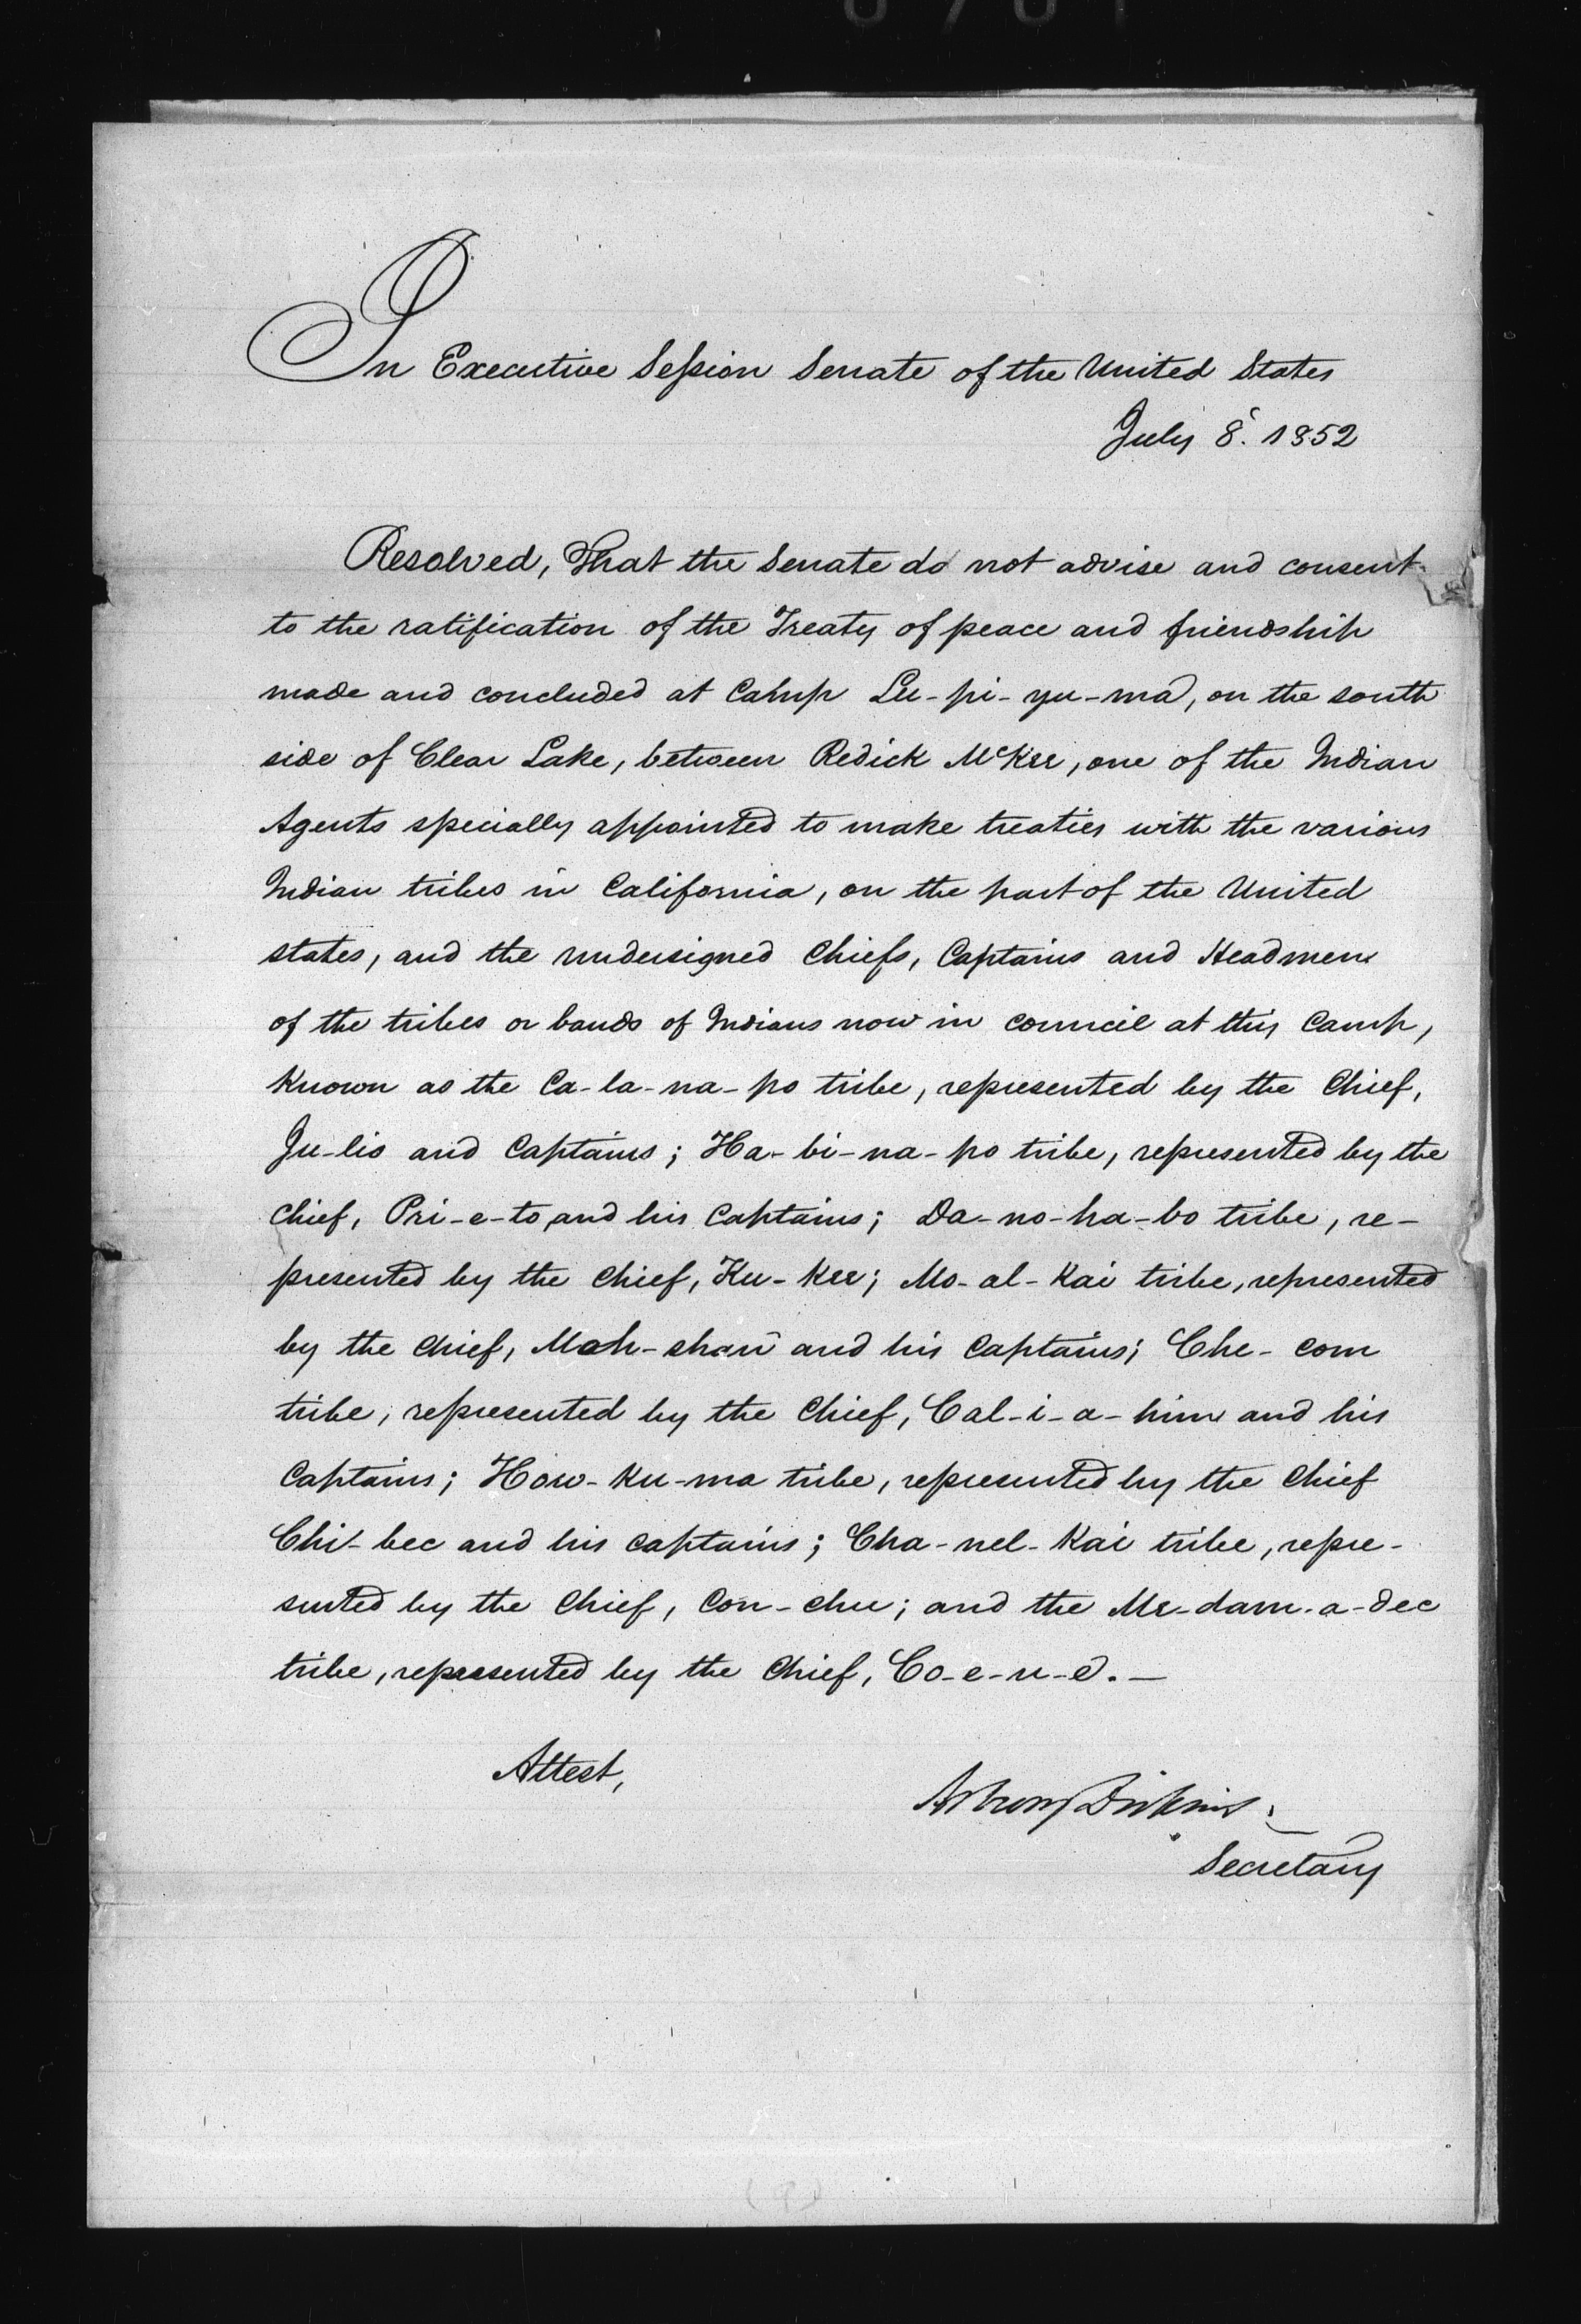 In Executive Session Senate of the United States
July 8. 1852
Resolved, That the Senate do not advise and consent
to the ratification of the Treaty of peace and friendship
made and concluded at Camp Lu-pi-yu-ma, on the south
side of Clear Lake, between Redick McKee, one of the Indian
Agents specially appointed to make treaties with the various
Indian tribes in California, on the part of the United
states, and the undersigned Chiefs, Captains and Headmen
of the tribes or bands of Indians now in council at this Camp,
Known as the Ca-la-na-po tribe, represented by the Chief,
Ju-lis and Captains; Ha-bi-na-po tribe, represented by the
Chief, Pri-e-to, and his Captains; Da-no-ha-bo tribe, re-
presented by the Chief, Ku-Kee; Mo-al-Kai tribe, represented
by the Chief, Moh-shaw and his Captains; Che-com
tribe, represented by the Chief, Cal-i-a-him and his
Captains; How-Ku-ma tribe, represented by the Chief
Chi-bec and his Captains; Cha-nel-Kai tribe, repre-
sented by the Chief, Con-chu; and the Me-dam-a-dec
tribe, represented by the Chief, Co-e-u-e. —
Attest,
Asbury Dickins,
Secretary